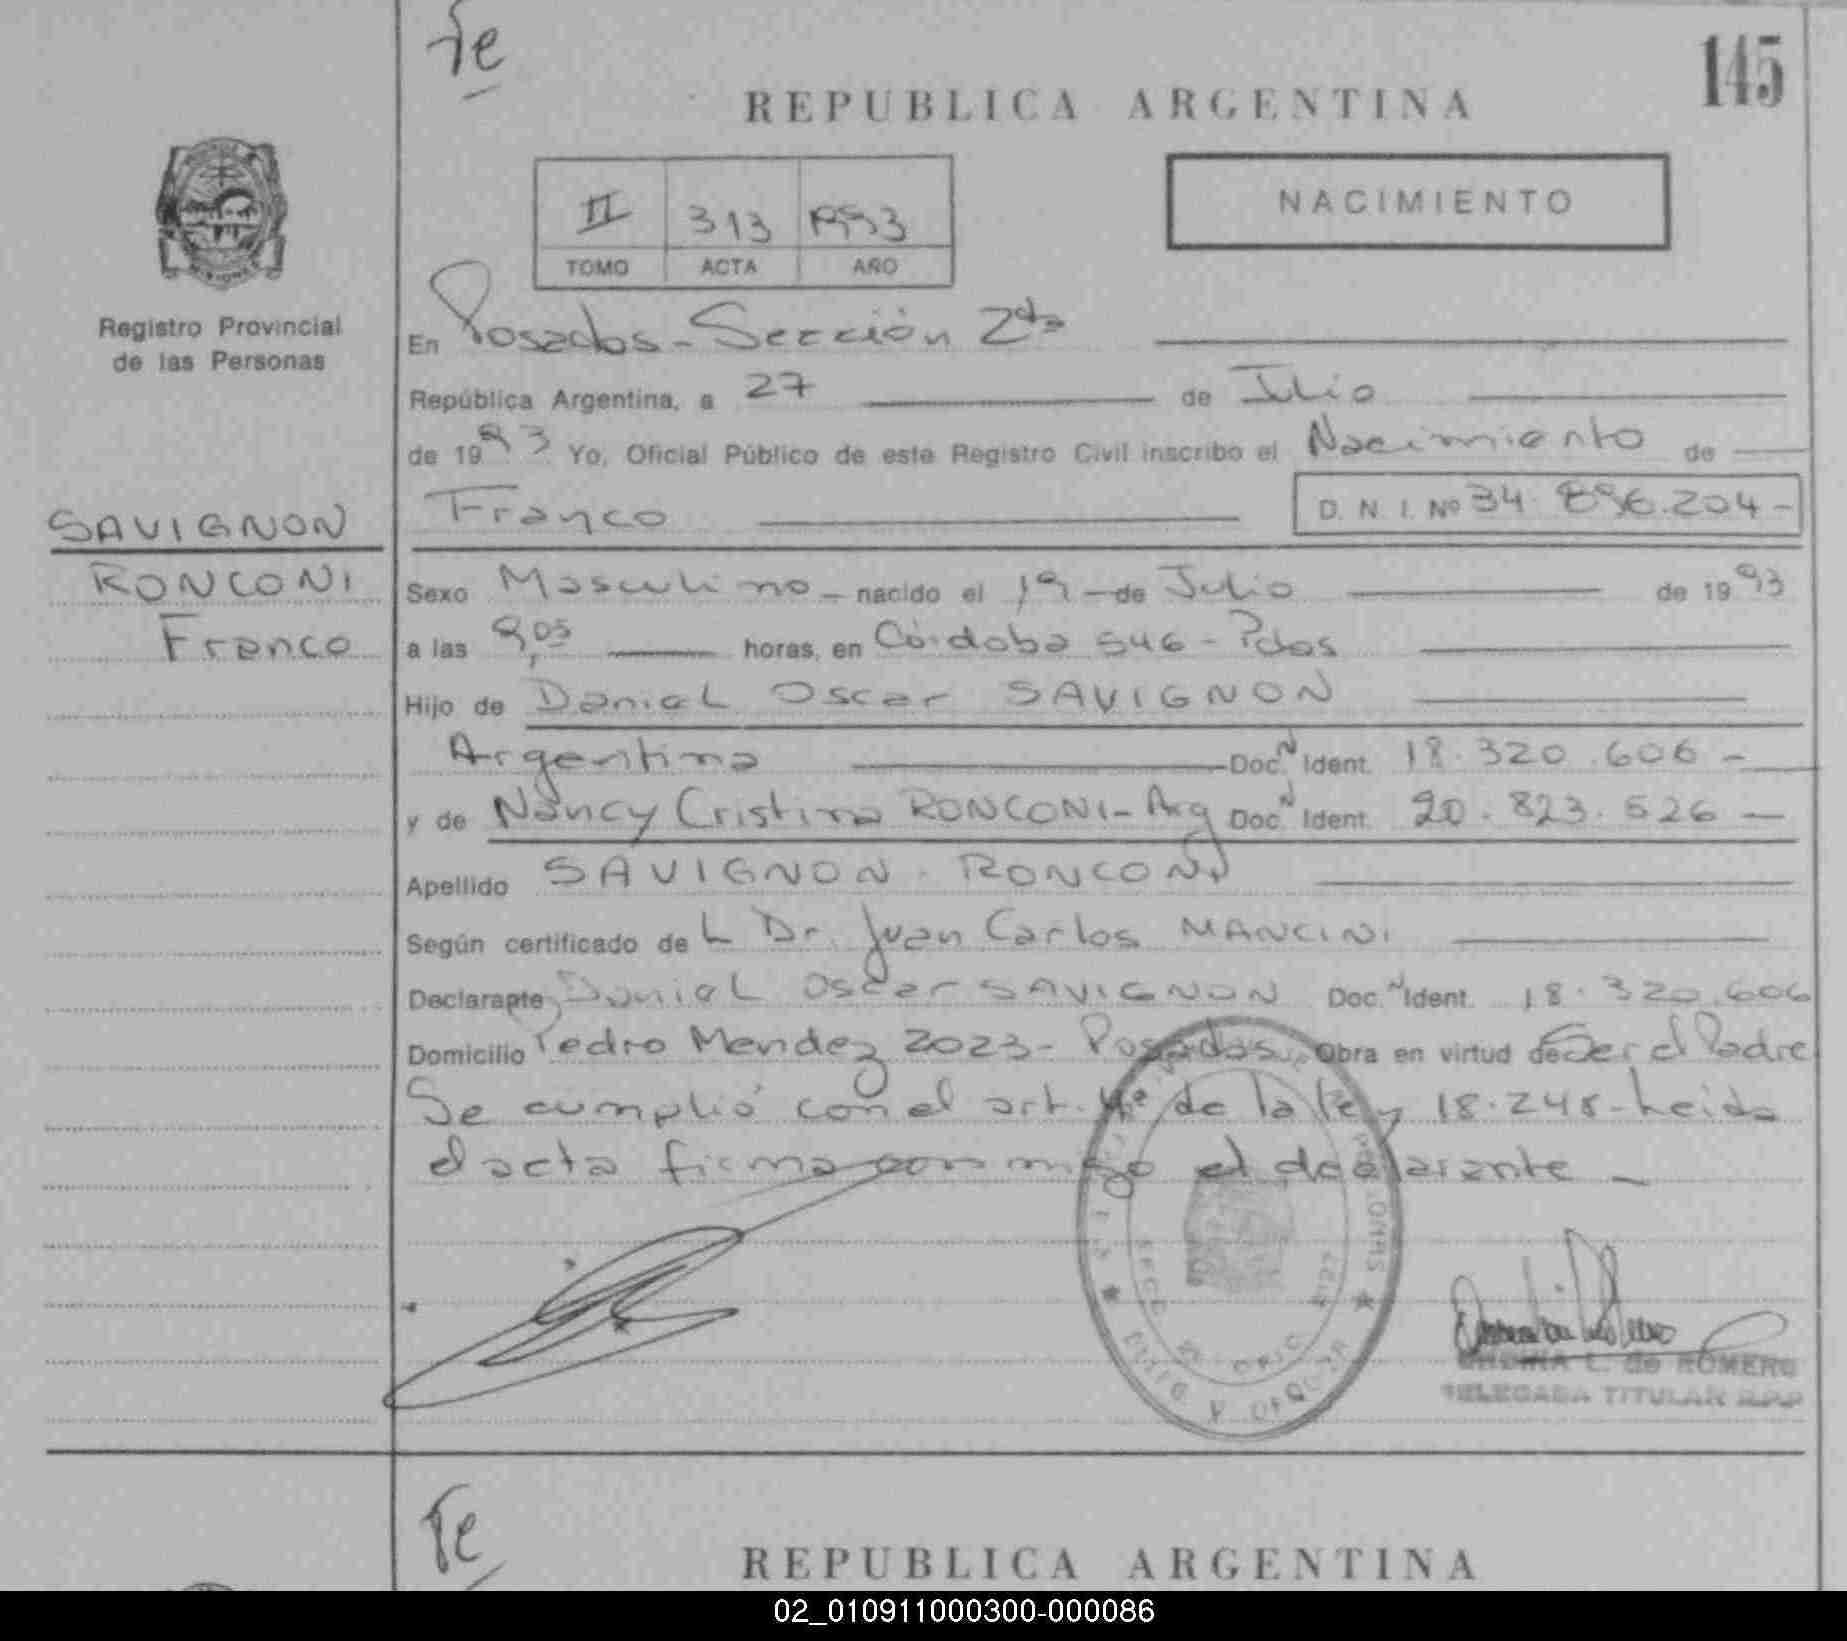 Te
145
REPUBLICA ARGENTINA
II 313 1993
TOMO ACTA AÑO
NACIMIENTO
Registro Provincial
de las Personas
En Posadas - Sección 2da
República Argentina, a 27 de Julio
de 1993 Yo, Oficial Público de este Registro Civil inscribo el Nacimiento de
Franco D. N. I. Nº 34.896.204-
SAVIGNON
RONCONI
Franco
Sexo Masculino - nacido el 19 - de Julio de 1993
a las 9,05 horas, en Córdoba 546 - Pdas
Hijo de Daniel Oscar SAVIGNON
Argentina Doc.N Ident. 18.320.606 -
y de Nancy Cristina RONCONI - Arg Doc.N Ident. 20.823.526 -
Apellido SAVIGNON RONCONI
Según certificado del Dr. Juan Carlos MANCINI
Declarante Daniel Oscar SAVIGNON Doc.N Ident. 18.320.606
Domicilio Pedro Mendez 2023 - Posadas Obra en virtud de Ser el Padre
Se cumplió con el art. 4º de la ley 18.248 - Leida
el acta firma conmigo el declarante -
L. de ROMERO
DELEGADA TITULAR R.P.P
Te
REPUBLICA ARGENTINA
02_010911000300-000086